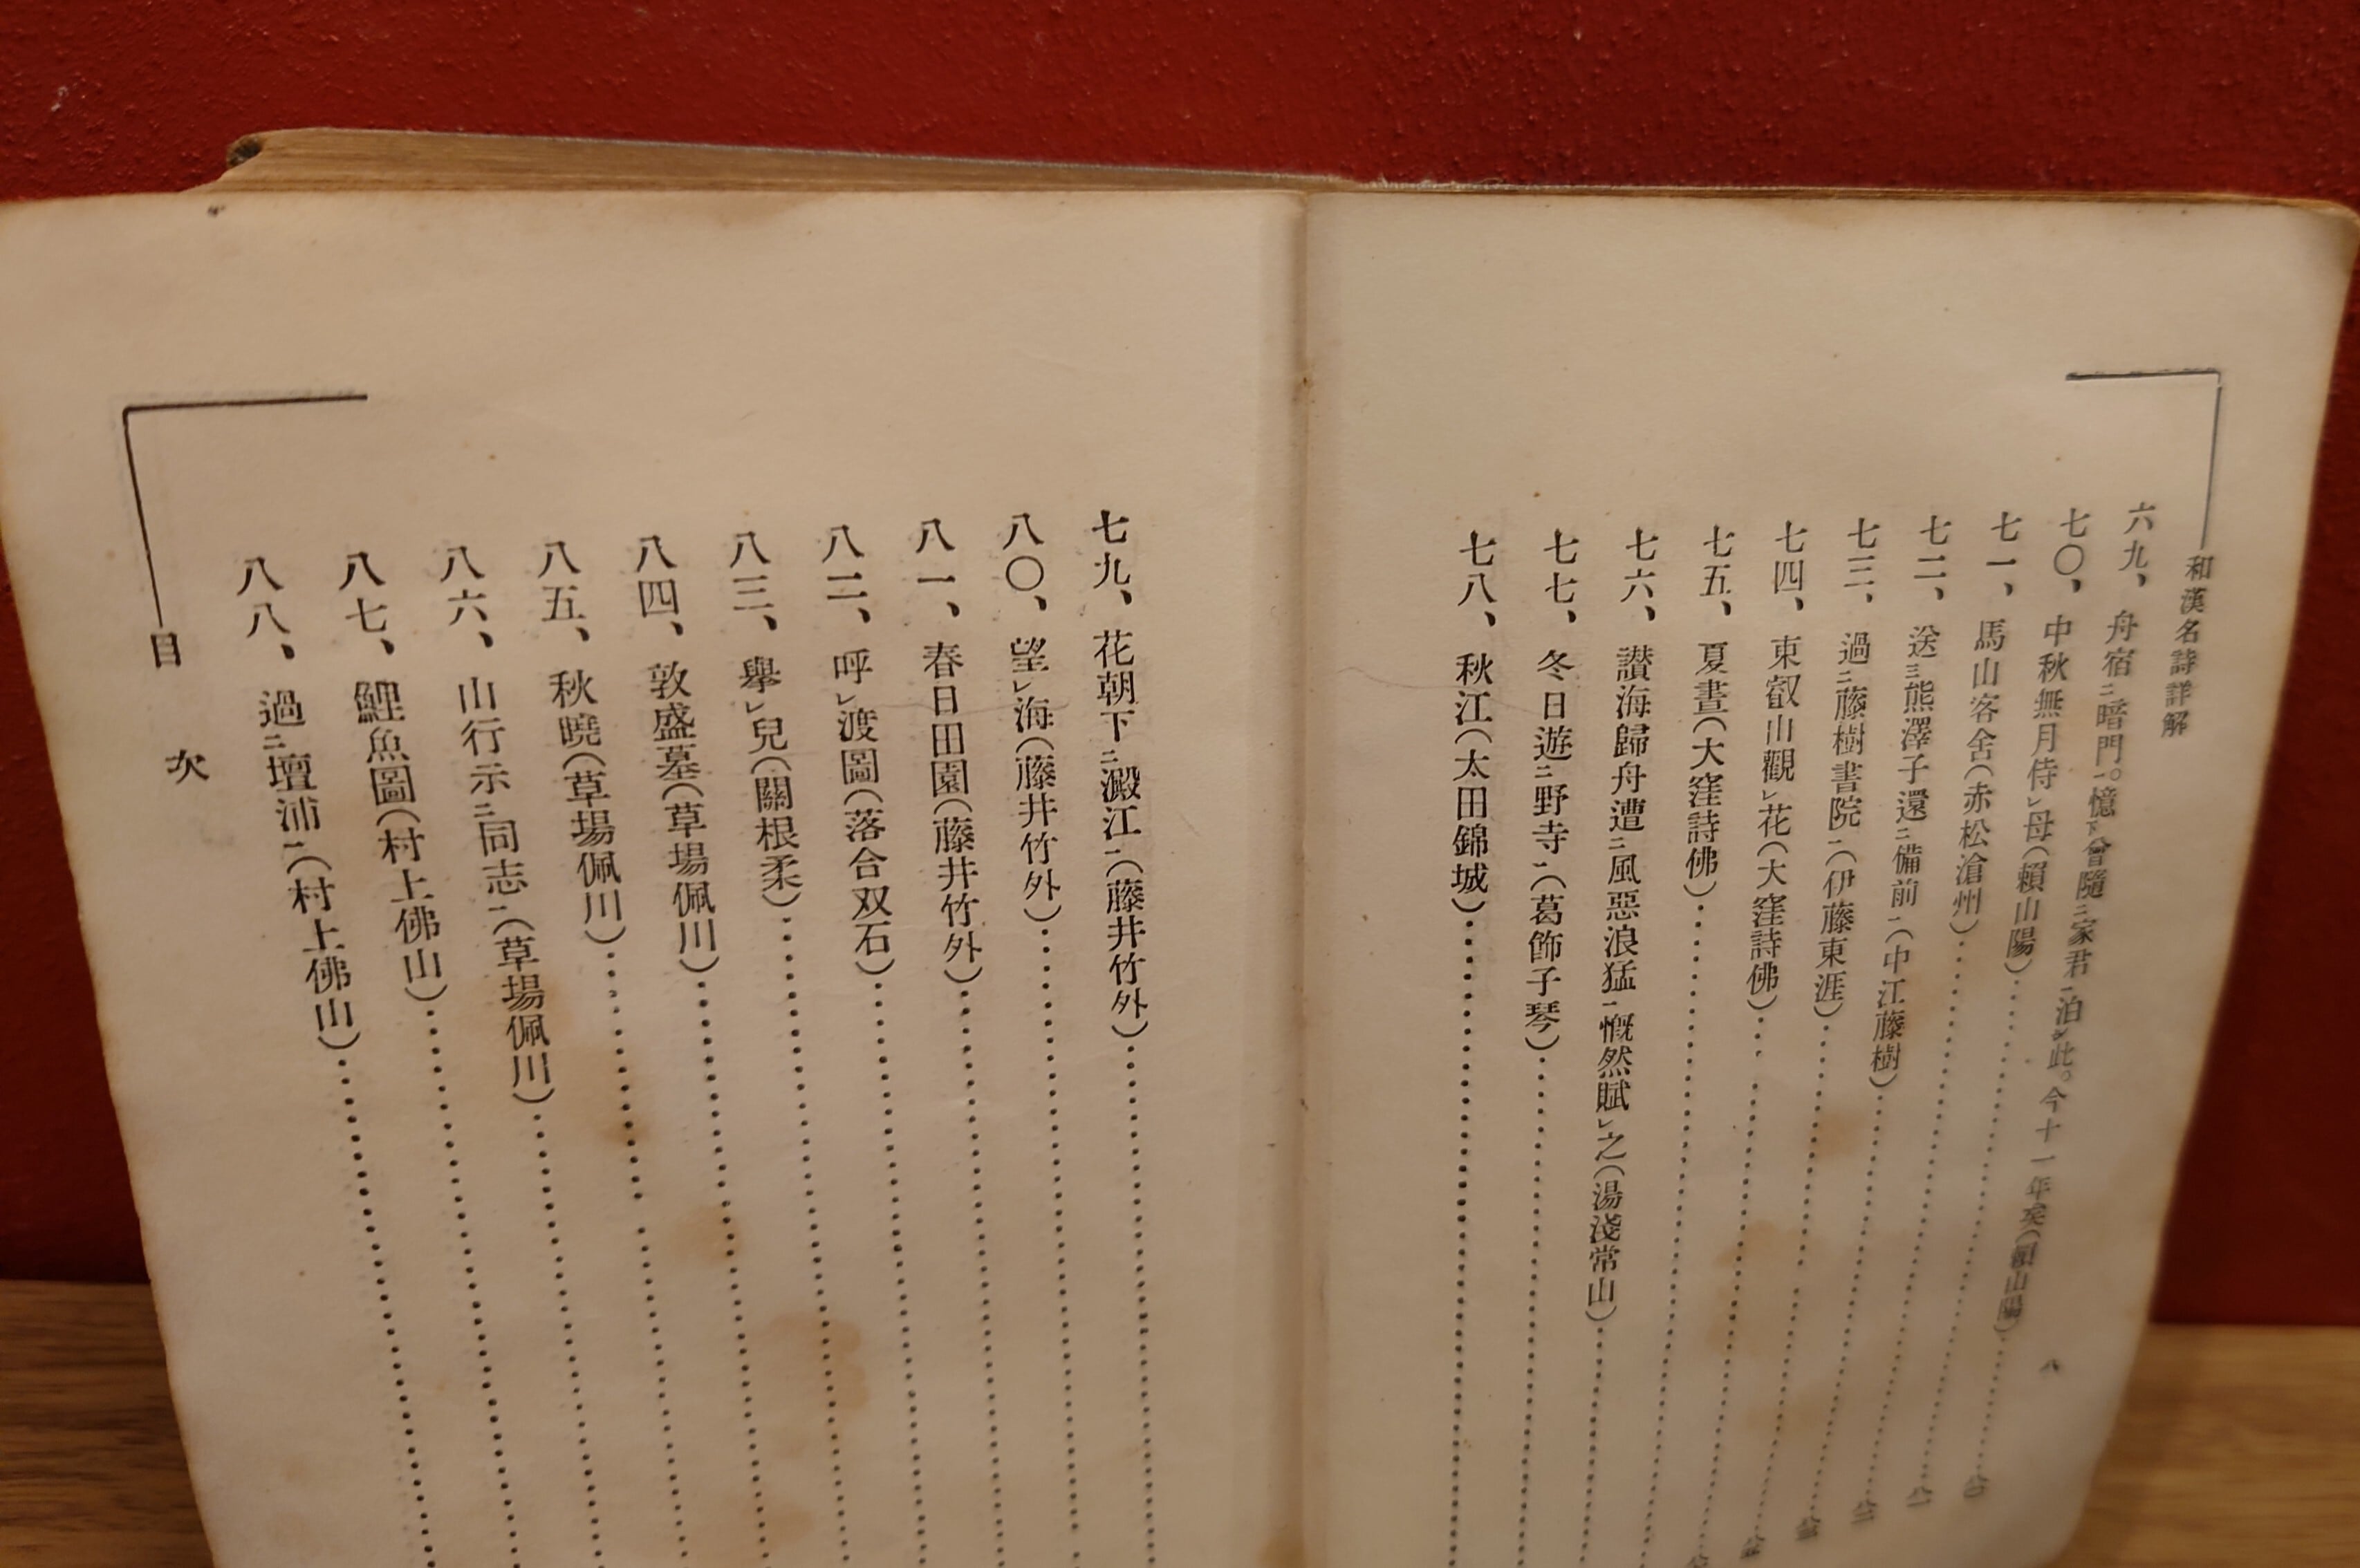 和漢名詩詳解
八
六九、舟宿㆓暗門㆒。憶㆘曾隨㆓家君㆒泊㆗此。今十一年矣(賴山陽)
七〇、中秋無月侍㆑母(賴山陽)
七一、馬山客舍(赤松滄州)
七二、送㆔熊澤子還㆓備前㆒(中江藤樹)
七三、過㆓藤樹書院㆒(伊藤東涯)
七四、東叡山觀㆑花(大窪詩佛)
七五、夏晝(大窪詩佛)
七六、讃海歸舟遭㆓風惡浪猛㆒慨然賦㆑之(湯淺常山)
七七、冬日遊㆓野寺㆒(葛飾子琴)
七八、秋江(太田錦城)
七九、花朝下㆓澱江㆒(藤井竹外)
八〇、望㆑海(藤井竹外)
八一、春日田園(藤井竹外)
八二、呼㆑渡圖(落合双石)
八三、擧㆑兒(關根柔)
八四、敦盛墓(草場佩川)
八五、秋曉(草場佩川)
八六、山行示㆓同志㆒(草場佩川)
八七、鯉魚圖(村上佛山)
八八、過㆓壇浦㆒(村上佛山)
目次